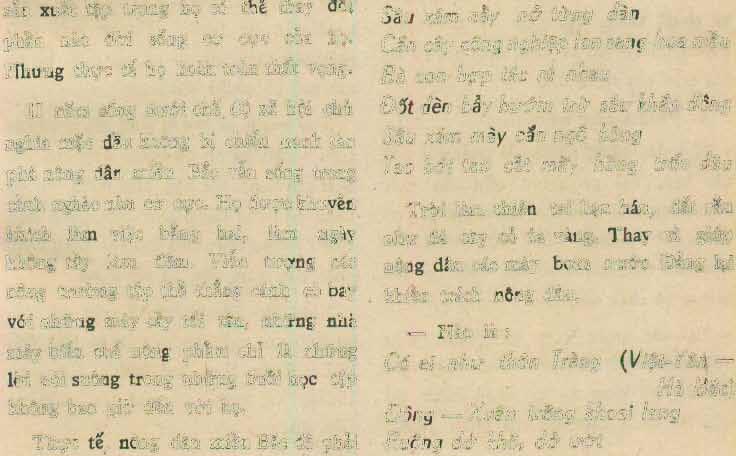 sản xuất tập trung họ có thể thay đổi
phần nào đời sống cơ cực của họ.
Nhưng thực tế họ hoàn toàn thất vọng.
11 năm sống dưới chế độ xã hội chủ
nghĩa mặc dầu không bị chiến tranh tàn
phá nông dân miền Bắc vẫn sống trong
cảnh nghèo nàn cơ cực. Họ được khuyến
khích làm việc bằng hai, làm ngày
không đủ làm đêm. Viễn tượng các
nông trường tập thể thẳng cánh cò bay
với những máy cầy tối tân, những nhà
máy biến chế nông phẩm chỉ là những
lời nói suông trong những buổi học tập
không bao giờ đến với họ.
Thực tế, nông dân miền Bắc đã phải
Sâu xám nẩy nở từng đàn
Cắn cây công nghiệp lan sang hoa mầu
Bà con hợp tác rủ nhau
Đốt đèn bẫy bướm trừ sâu khắp đồng
Sâu xám mày cắn ngô bông
Tao bắt tao cắt mấy hàng
Trời làm thiên tai hạn hán, đất rắn
như đá cây cỏ úa vàng. Thay vì giúp
nông dân các máy bơm nước Đảng lại
khiển trách nông dân.
— Nào là :
Có ai như thôn Tràng (Việt-Yên —
Hà Bắc)
Đông — Xuân trồng khoai lang
Ruộng dở khô, dở ướt